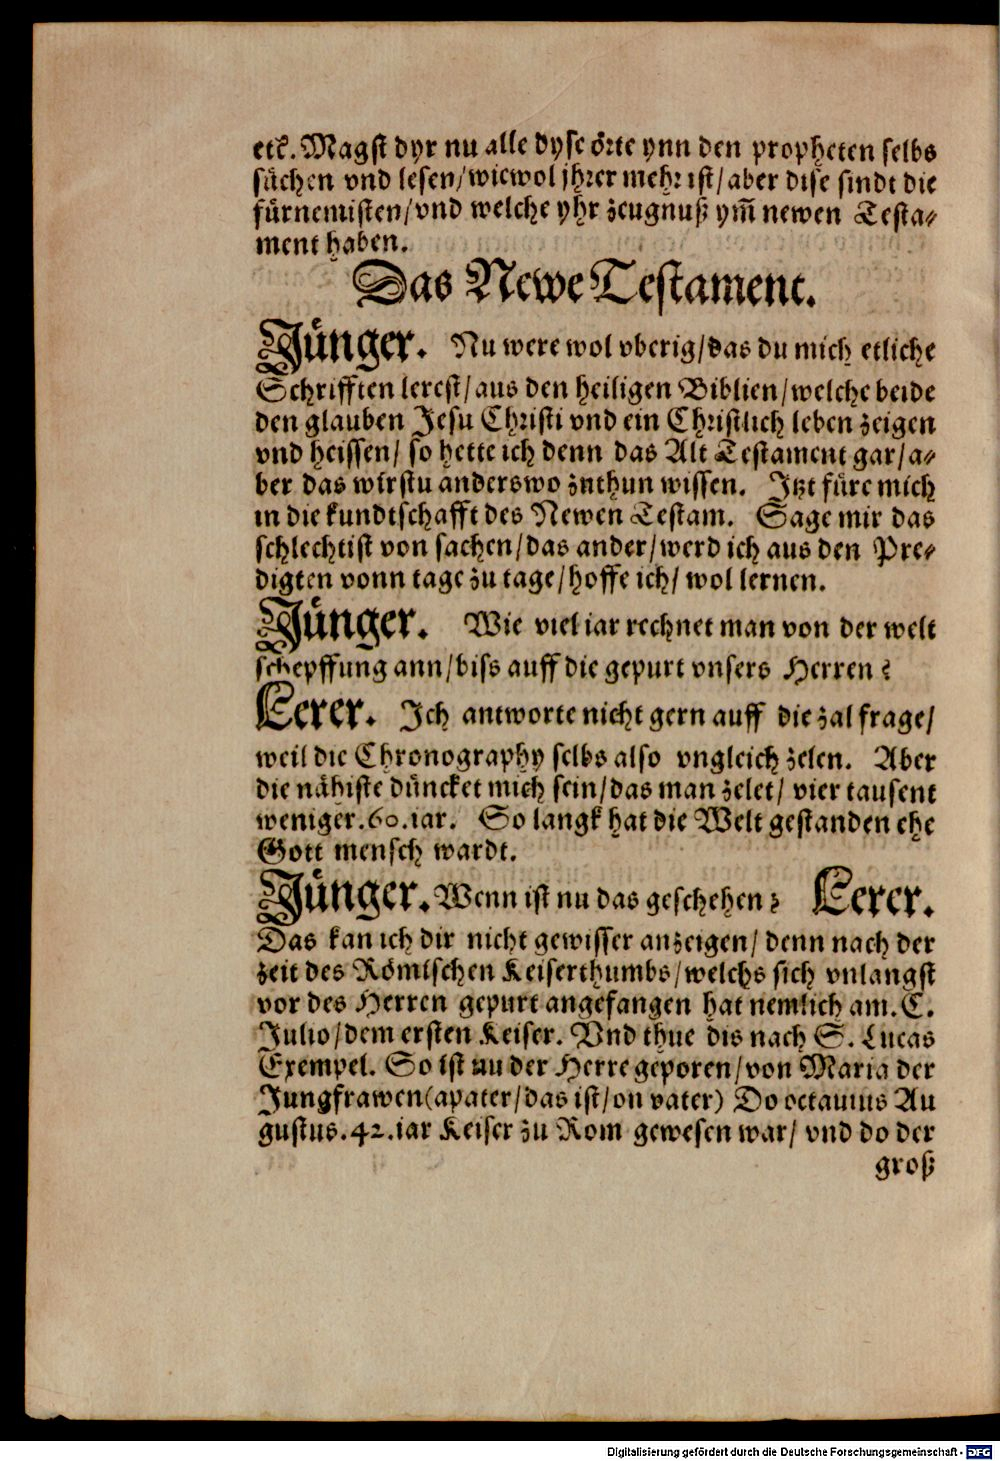 etc. Magst dyr nu alle dyse örte ynn den propheten selbs
suͤchen vnd lesen/wiewol jhrer mehr ist/aber dise sindt die
fürnemisten/vnd welche yhr zeugnuß ym̄ newen Testa⸗
ment haben.
Das Newe Testament.
Jünger. Nu were wol vberig/das du mich etliche
Schrifften lerest/aus den heiligen Biblien/welche beide
den glauben Jesu Christi vnd ein Christlich leben zeigen
vnd heissen/ so hette ich denn das Alt Testament gar/a⸗
ber das wirstu anderswo zuthun wissen. Jtzt füre mich
in die kundtschafft des Newen Testam. Sage mir das
schlechtist von sachen/das ander/werd ich aus den Pre⸗
digten vonn tage zu tage/hoffe ich/ wol lernen.
Jünger. Wie viel iar rechnet man von der welt
schepffung ann/biss auff die gepurt vnsers Herren?
Lerer. Jch antworte nicht gern auff die zal frage/
weil die Chronography selbs also vngleich zelen. Aber
die nähiste düncket mich sein/das man zelet/ vier tausent
weniger.60.iar. So langk hat die Welt gestanden ehe
Gott mensch wardt.
Jünger. Wenn ist nu das geschehen? Lerer.
Das kan ich dir nicht gewisser anzeigen/ denn nach der
zeit des Römischen Keiserthumbs/welchs sich vnlangst
vor des Herren gepurt angefangen hat nemlich am.C.
Julio/dem ersten Keiser. Vnd thue dis nach S. Lucas
Exempel. So ist nu der Herre geporen/von Maria der
Jungfrawen(apater/das ist/on vater) Do octauius Au
gustus.42.iar Keiser zu Rom gewesen war/ vnd do der
groß
Digitalisierung gefördert durch die Deutsche Forschungsgemeinschaft - DFG